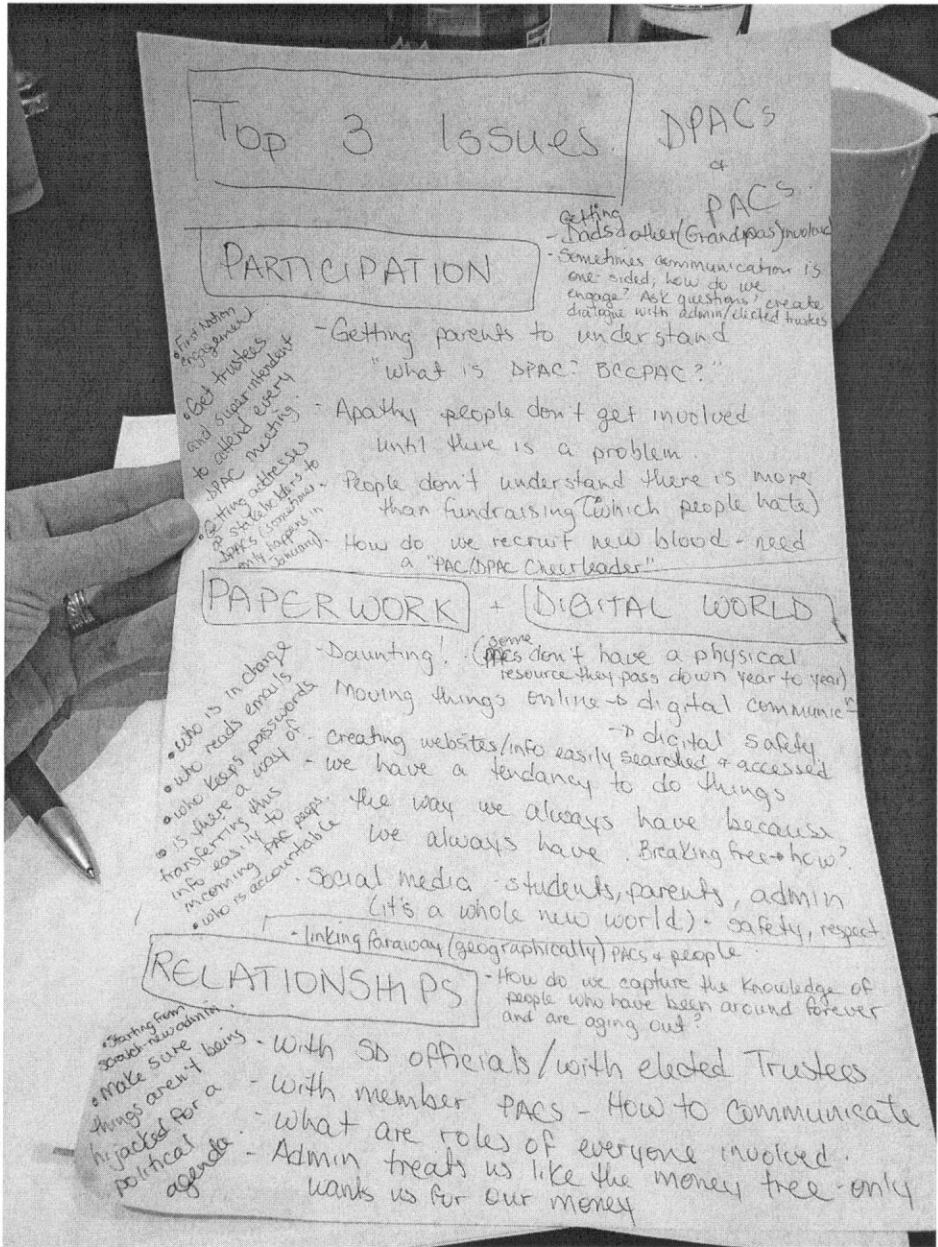 Top 3 Issues
DPACs
&
PACs
PARTICIPATION
Getting
- Dads & other (Grandpas) involved
- Sometimes communication is
one-sided, how do we
engage? Ask questions? create
dialogue with admin/elected trustees
• First Nation
engagement
• Get trustees
and superintendent
to attend every
DPAC meeting.
• Getting addresses
of stakeholders to
DPACs (somehow
only happens in
January)
- Getting parents to understand
"what is DPAC? BCCPAC?"
- Apathy people don't get involved
until there is a problem.
- People don't understand there is more
than fundraising (which people hate)
- How do we recruit new blood - need
a "PAC/DPAC Cheerleader"
PAPERWORK + DIGITAL WORLD
• who is in charge
• who reads emails
• who keeps passwords
• is there a way of
transferring this
info easily to
incoming PAC peeps.
• who is accountable
- Daunting! (some PACs don't have a physical
resource they pass down year to year)
- Moving things online → digital communicⁿ
→ digital safety
- creating websites/info easily searched & accessed
- we have a tendancy to do things
the way we always have because
we always have. Breaking free → how?
- Social media - students, parents, admin
(it's a whole new world) - safety, respect
- linking faraway (geographically) PACs & people
RELATIONSHIPS
- How do we capture the knowledge of
people who have been around forever
and are aging out?
• Starting from
scratch - new admin.
• Make sure
things aren't being
hijacked for a
political
agenda
- with SD officials/with elected Trustees
- with member PACS - How to communicate
- what are roles of everyone involved.
- Admin treats us like the money tree - only
wants us for our money